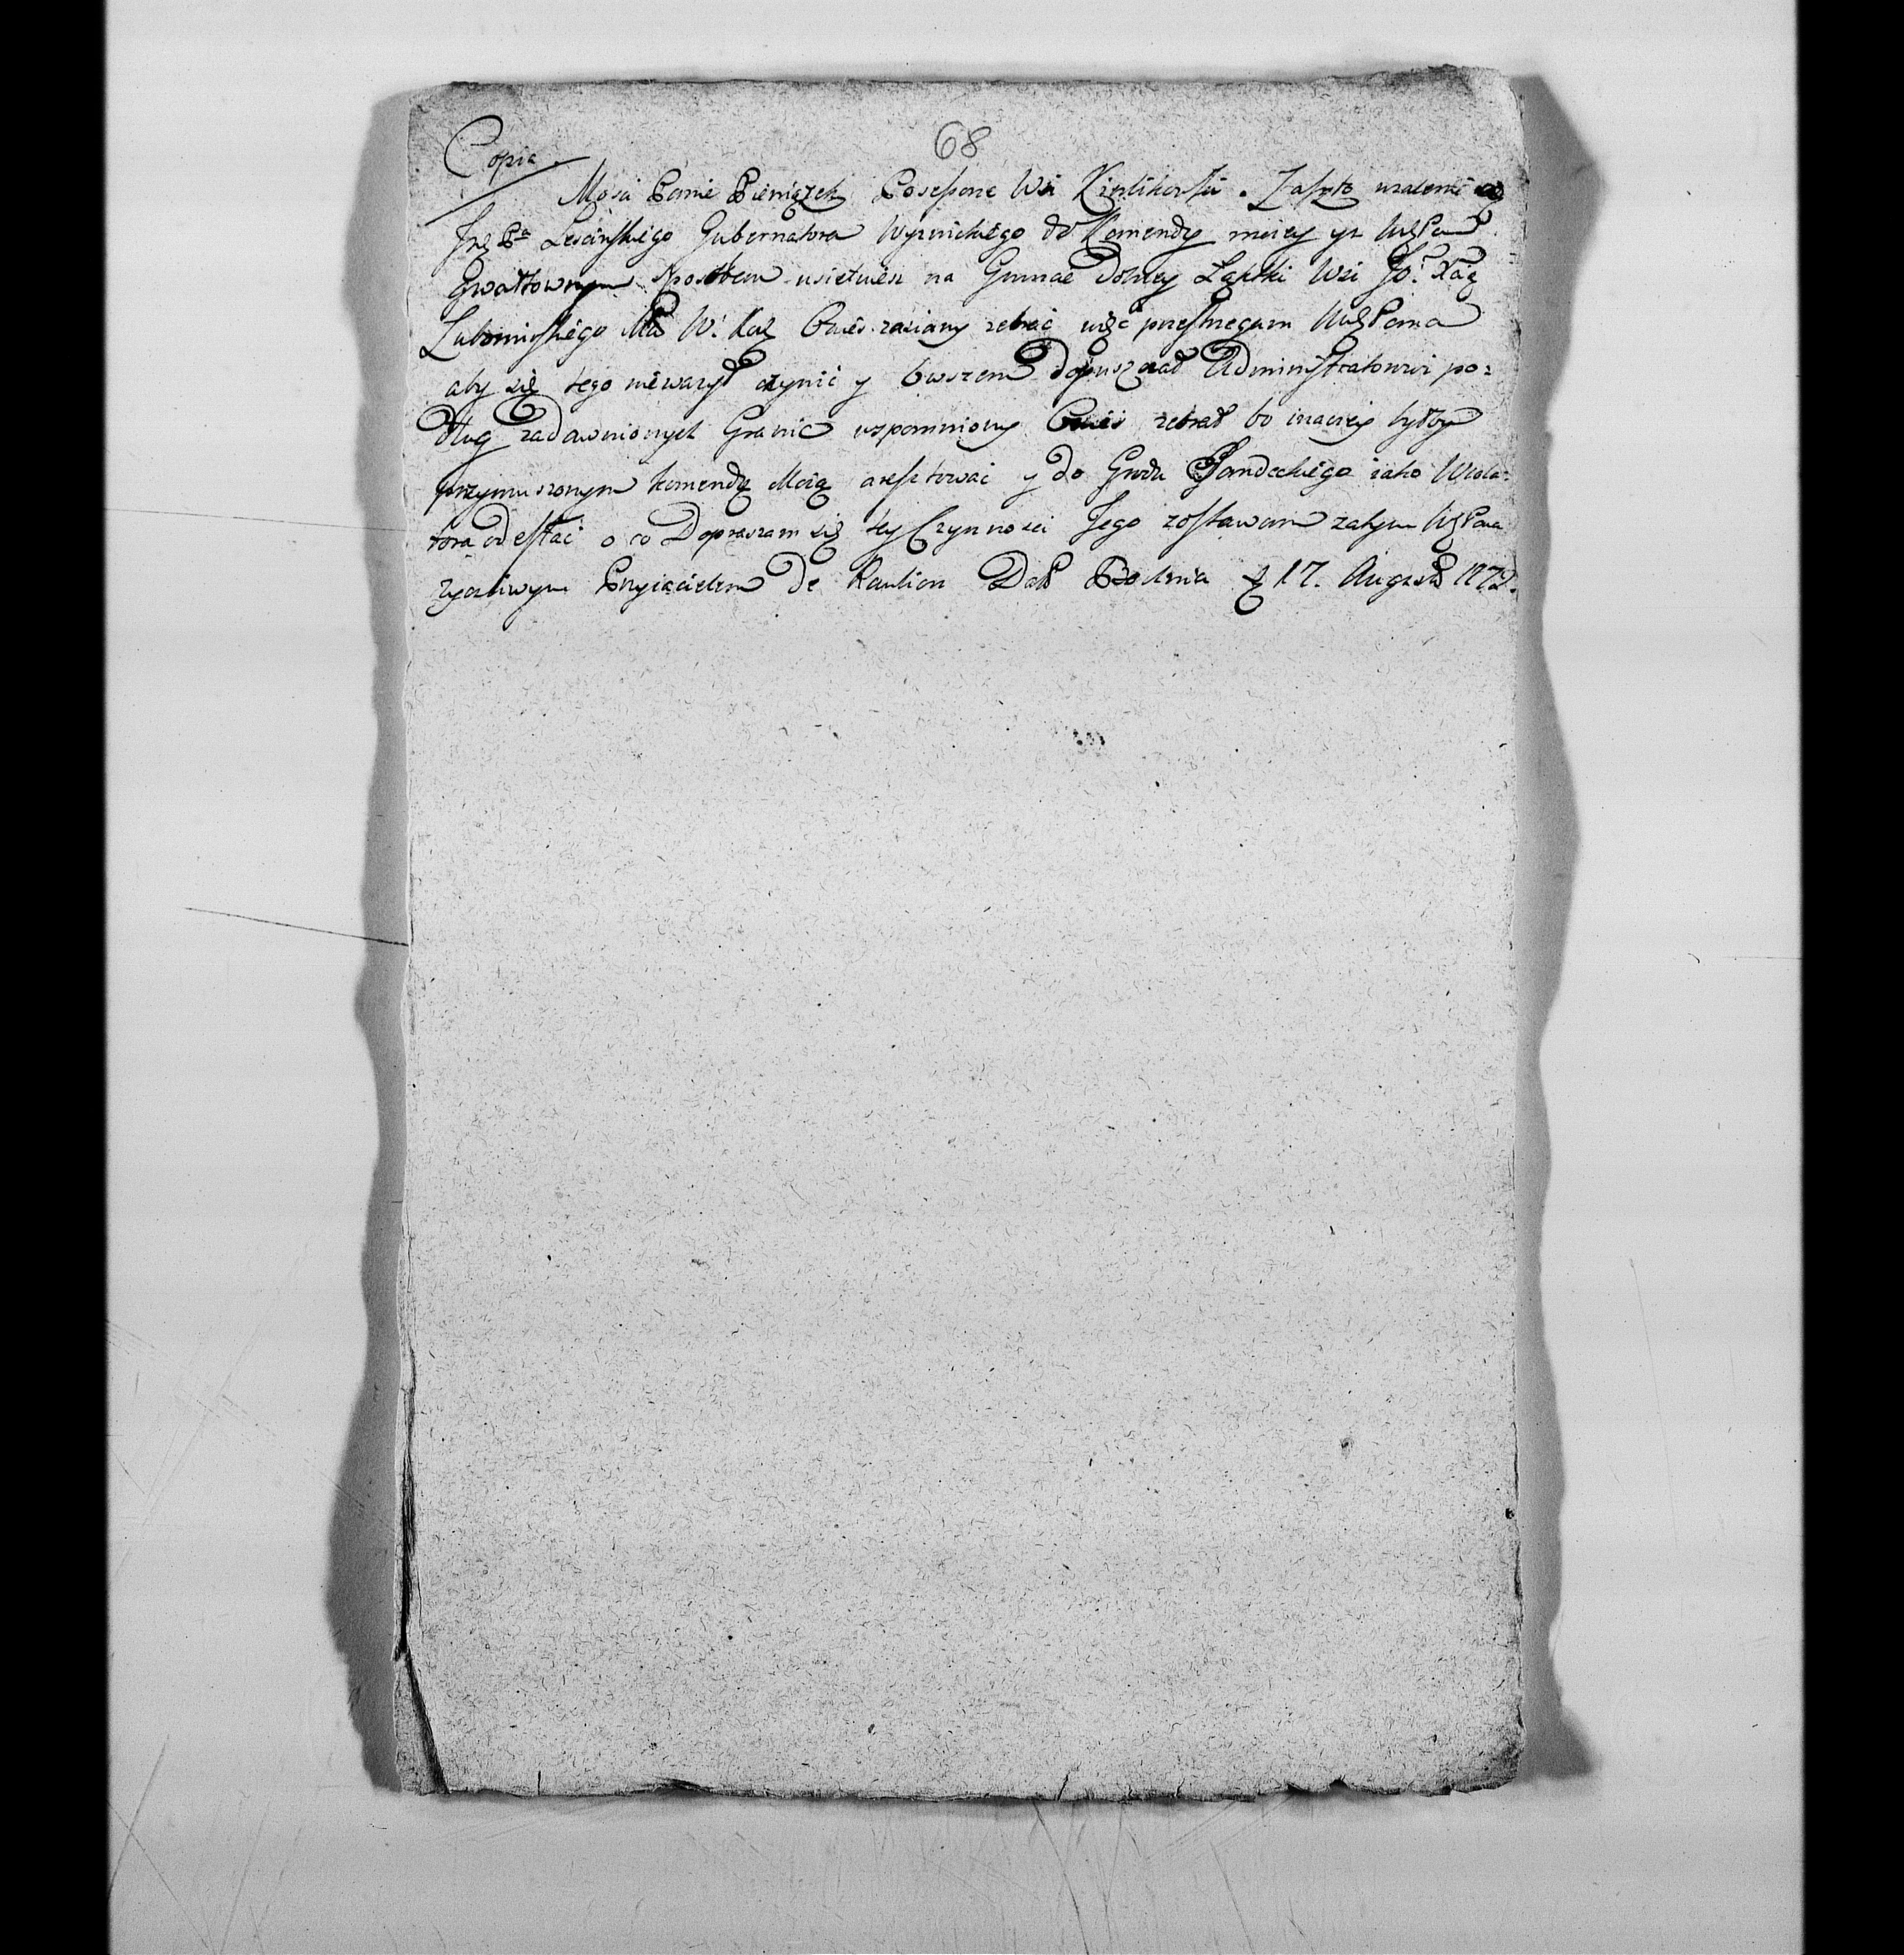 68
Copia
Mosci Panie Pieniążek Possesorze Wsi Kierlikowki. Zaszło uzalenie od
Jmć Pa Lescinskiego Gubernatora Wiśnickiego do Komendy moiey yz WPan
Gwałtownym sposobem usiełuiesz na Gruncie Dolney Łąkthi Wsi Jo: Xcia
Lubomirskiego Owies zasiany zebrać więc przestrzegam WMPana
aby się tego nieważył czynić y owszem dopuszczał Administratorowi po=
dług zadawnionych Granic wspomniony Owies zebrał bo inaczey byłbym
przymuszonym komendą Moią aresztować y do Grodu Sandeckiego iako Viola=
tora odesłać o co Dopraszam się tey Czynnosci Jego zostawam zatym WPana
zyczliwym Przyjacielem De Dat Bochnia d 17. Augusti 1772.